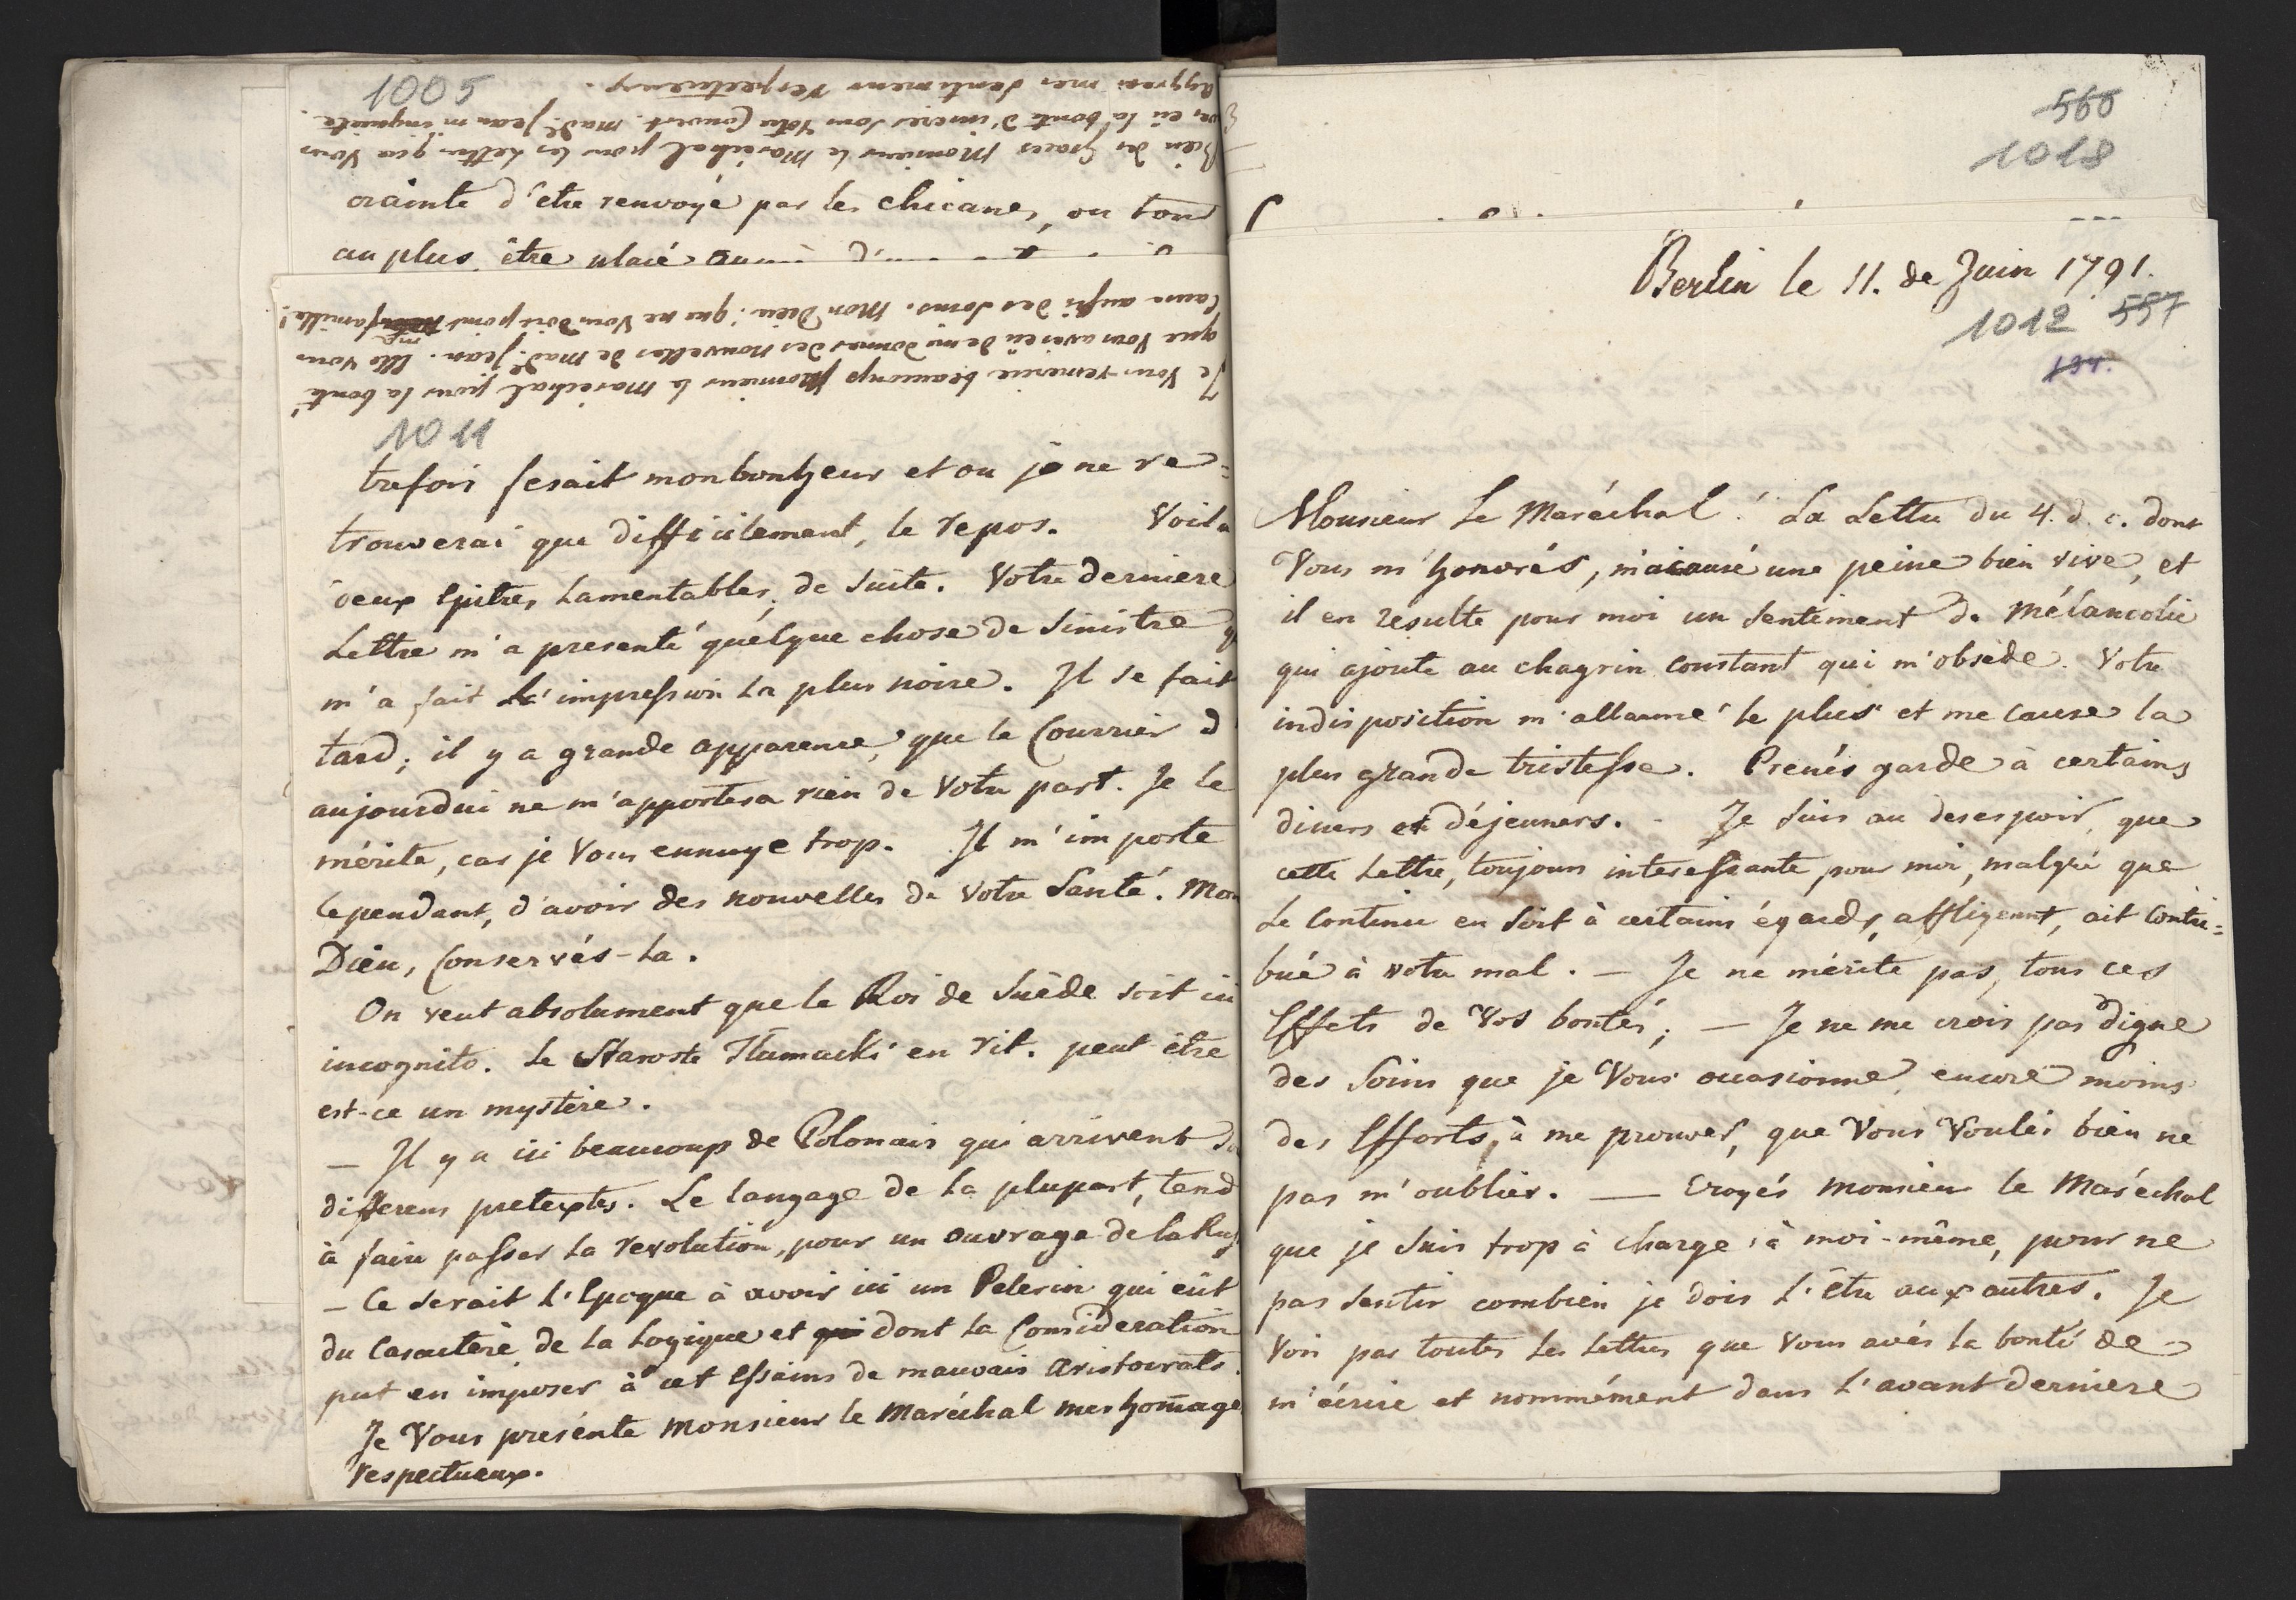 1005
Bien des graces Monsieur le Maréchal pour les Lettres que Vous
avés eü la bonté d'inserer sous Votre Couvert. Mad.e Jean m'inquiete.
Aggrées mes sentimens respectueux.
crainte d'être renvoyé par les chicanes, ou tout
au plus être placé
Je Vous remercie beaucoup Monsieur le Maréchal pour la bonté
que Vous avés eü de me donner des nouvelles de Mad.e Jean. Elle Vous
cause aussi des soins. Mon Dieu! que ne Vous dois point ma famille!
1011
trefois fesait mon bonheur et ou je ne re=
trouverai que difficilement, le repos. Voila
deux Epitres Lamentables, de suite. Votre derniere
Lettre m'a presenté quelque chose de sinistre q
m'a fait L'impression La plus noire. Il se fait
tard; il y a grande apparence, que le Courrier d'
aujourdui ne m'apportera rien de Votre part. Je le
mérite, car je Vous ennuye trop. Il m'importe
Cependant, d'avoir des nouvelles de Votre Santé. Mon
Dieu, Conservés-La.
On veut absolument que le Roi de Suède soit ici
incognito. Le Staroste Tlumacki en rit. peut être
est-ce un mystère.
— Il y a ici beaucoup de Polonais qui arrivent
differens pretextes. Le langage de La plupart, tend
à faire passer La revolution, pour un ouvrage de la Rus
— Ce serait L'Epoque à avoir ici un Pelerin qui eût
du Caractère de La Logique et dont La Consideration
put en imposer à cet Essains de mauvais Aristocrats.
Je Vous présente Monsieur le Maréchal mes homages
respectueux.
560
1018
Berlin le 11. de Juin 1791.
1012 557
194.
Monsieur Le Maréchal! La Lettre du 4. d. c. dont
Vous m'honorés, m'a causé une peine bien vive, et
il en resulte pour moi un sentiment de mélancolie
qui ajoute au chagrin constant qui m'obsède. Votre
indisposition m'allarme le plus et me cause la
plus grande tristesse. Prenés garde à certains
diners et déjeuners. — Je suis au desespoir, que
cette Lettre, toujours interessante pour moi, malgré que
Le Contenu en soit à certains égards, affligeant, ait Contri=
bué à votre mal. — Je ne mérite pas, tous ces
Effets de Vos bontés; — Je ne me crois pas digne
des soins que je Vous occasionne, encore moins
des Efforts, à me prouver, que Vous Voulés bien ne
pas m'oublier. — Croyés Monsieur le Maréchal
que je suis trop à charge à moi-même, pour ne
pas sentir combien je dois L'être aux autres. Je
Vois par toutes Les Lettres que Vous avés la bonté de
m'écrire et nommément dans L'avant derniere